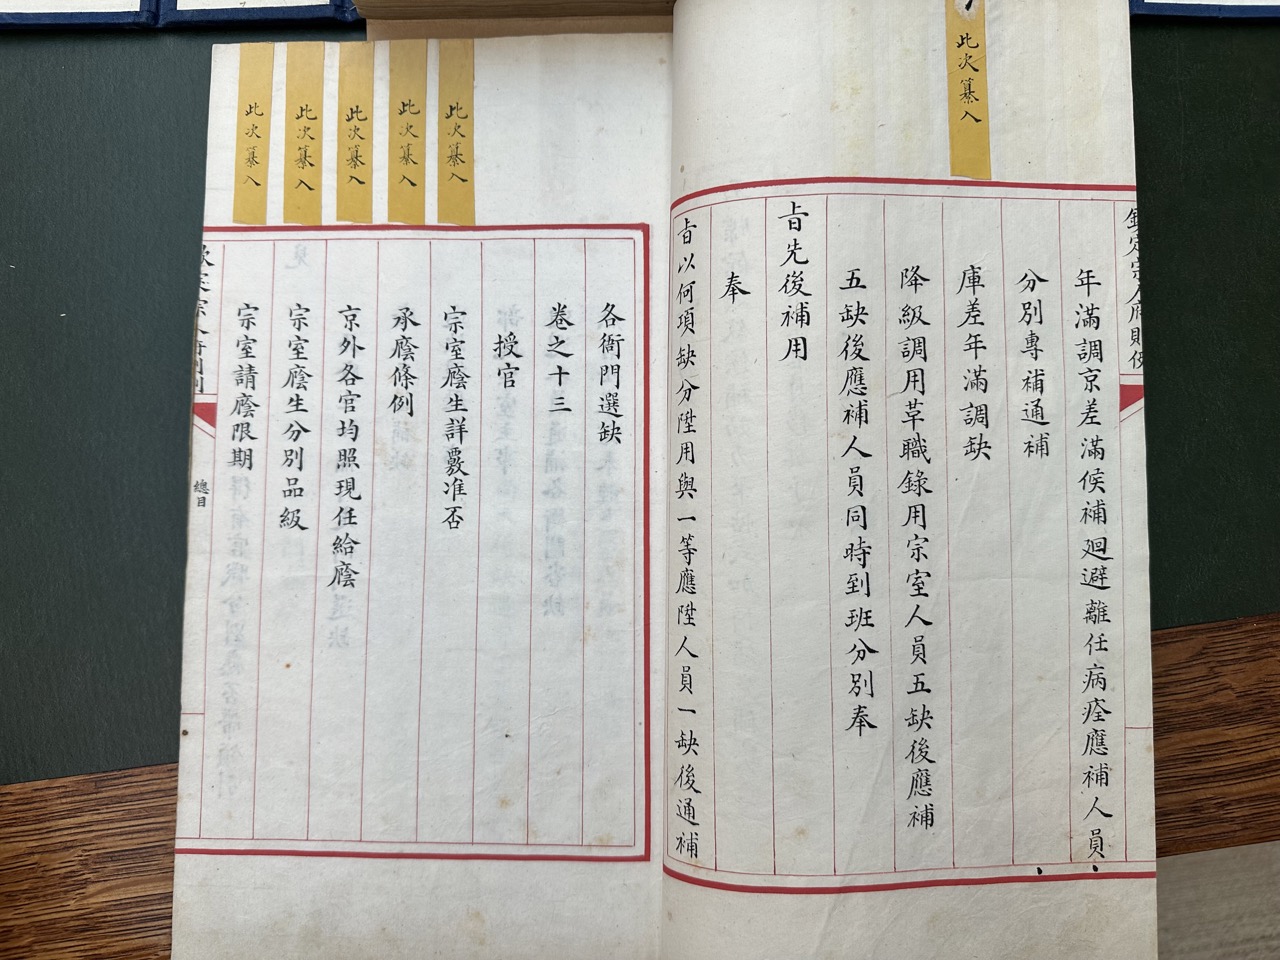 此次纂入
欽定宗人府則例
年滿調京差滿候補廻避離任病痊應補人員
分別專補通補
庫差年滿調缺
降級調用革職錄用宗室人員五缺後應補
五缺後應補人員同時到班分別奉
旨先後補用
奉
旨以何項缺分陞用與一等應陞人員一缺後通補
此次纂入
此次纂入
此次纂入
此次纂入
此次纂入
各衙門選缺
卷之十三
授官
宗室廕生詳覈准否
承廕條例
京外各官均照現任給廕
宗室廕生分別品級
宗室請廕限期
總目